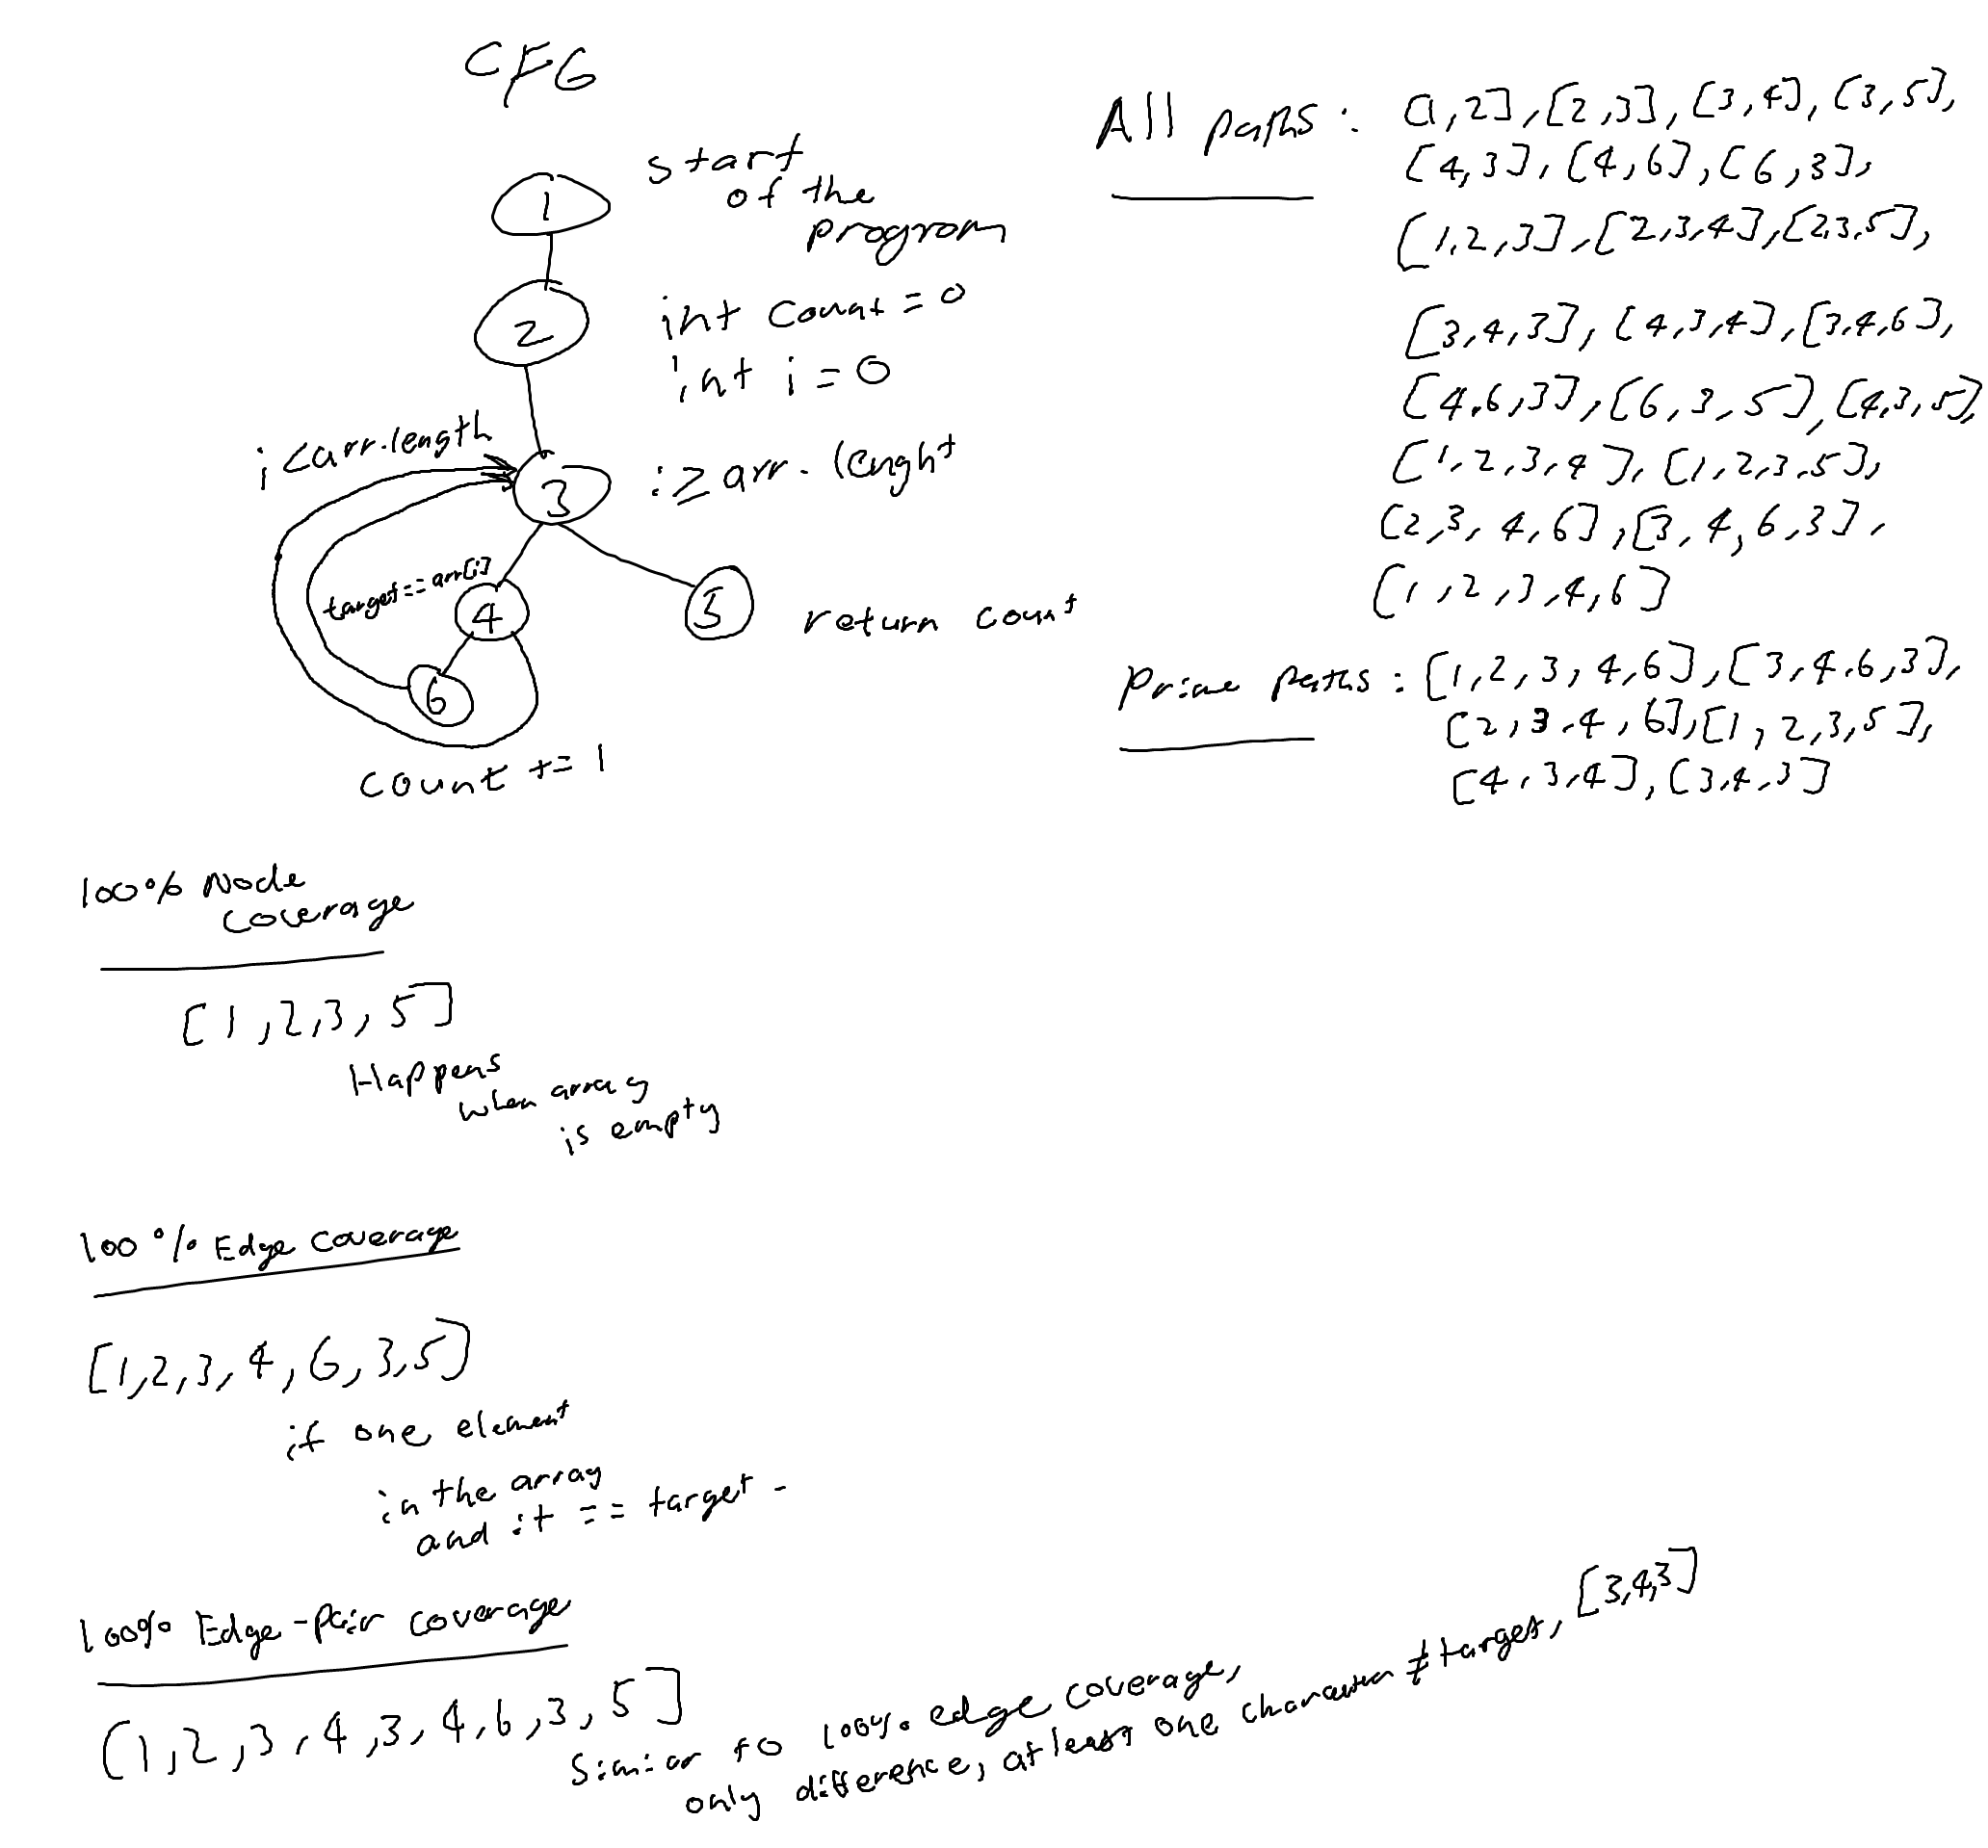 CFG
1
start
of the
program
2
int count = 0
int i = 0
i < arr.length
3
i ≥ arr.lenght
target == arr[i]
4
5
return count
6
count += 1
All paths: [1,2], [2,3], [3,4], [3,5],
[4,3], [4,6], [6,3],
[1,2,3], [2,3,4], [2,3,5],
[3,4,3], [4,3,4], [3,4,6],
[4,6,3], [6,3,5], [4,3,5],
[1,2,3,4], [1,2,3,5],
[2,3,4,6], [3,4,6,3],
[1,2,3,4,6]
Prime paths: [1,2,3,4,6], [3,4,6,3],
[2,3,4,6], [1,2,3,5],
[4,3,4], [3,4,3]
100% Node
coverage
[1,2,3,5]
Happens
when array
is empty
100% Edge coverage
[1,2,3,4,6,3,5]
if one element
in the array
and it == target.
100% Edge-pair coverage
[1,2,3,4,3,4,6,3,5]
Similar to 100% edge coverage,
only difference, at least one character ≠ target, [3,4,3]